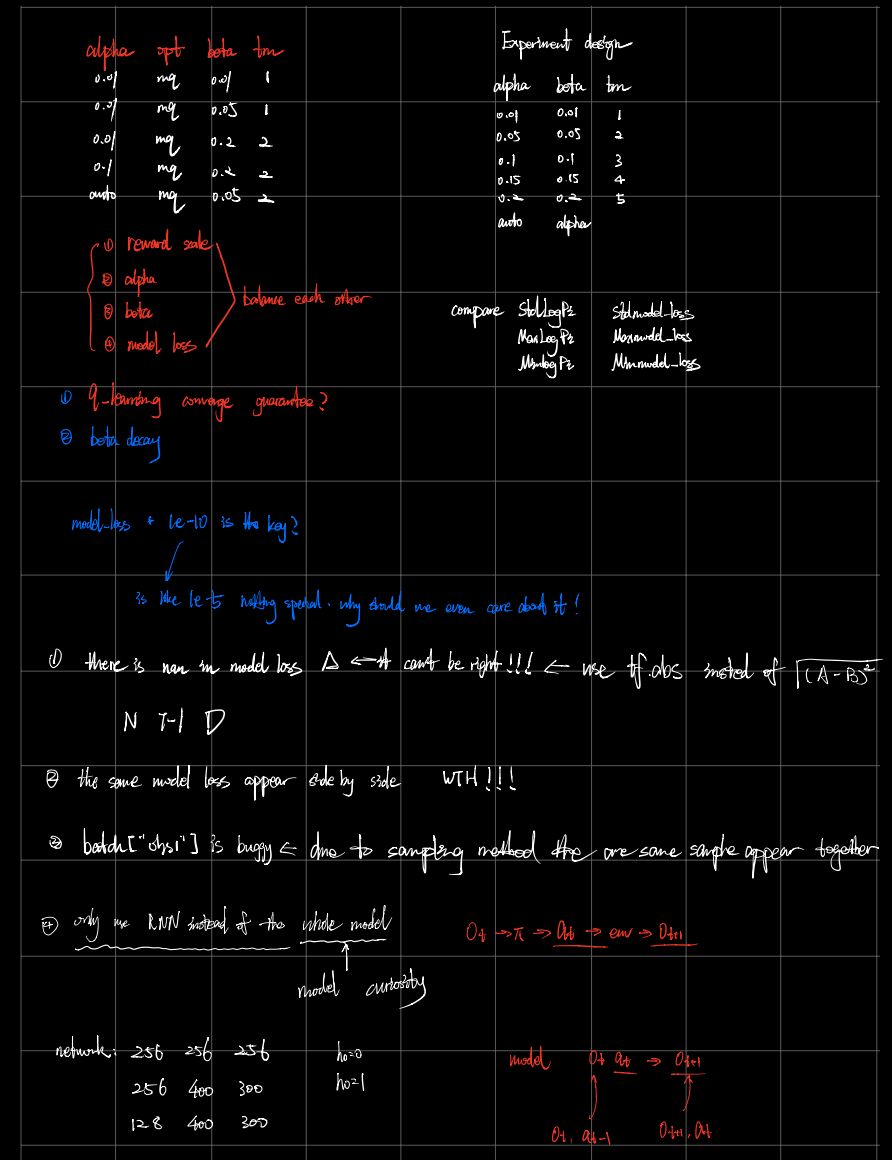 alpha opt beta tm
0.01 mq 0.01 1
0.01 mq 0.05 1
0.01 mq 0.2 2
0.1 mq 0.2 2
auto mq 0.05 2
Experiment design
alpha beta tm
0.01 0.01 1
0.05 0.05 2
0.1 0.1 3
0.15 0.15 4
0.2 0.2 5
auto alpha
① reward scale
② alpha
③ beta
④ model loss
balance each other
compare StdLogPz Stdmodel_loss
MaxLogPz Maxmodel_loss
MinLogPz Minmodel_loss
① q-learning converge guarantee?
② beta decay
model_loss * 1e-10 is the key?
is like 1e-5 nothing special. why should we even care about it!
① there is nan in model loss Δ ← it can't be right!!! ← use tf.abs insted of √(A-B)²
N T-1 D
② the same model loss appear side by side WTH!!!
③ batch["obs1"] is buggy ← due to sampling method the are same sample appear together
④ only use RNN instead of the whole model
model curiosity
Ot → π → at → env → Ot+1
network: 256 256 256
256 400 300
128 400 300
h0=0
h0=1
model Ot at → Ot+1
Ot, at-1 Ot+1, at